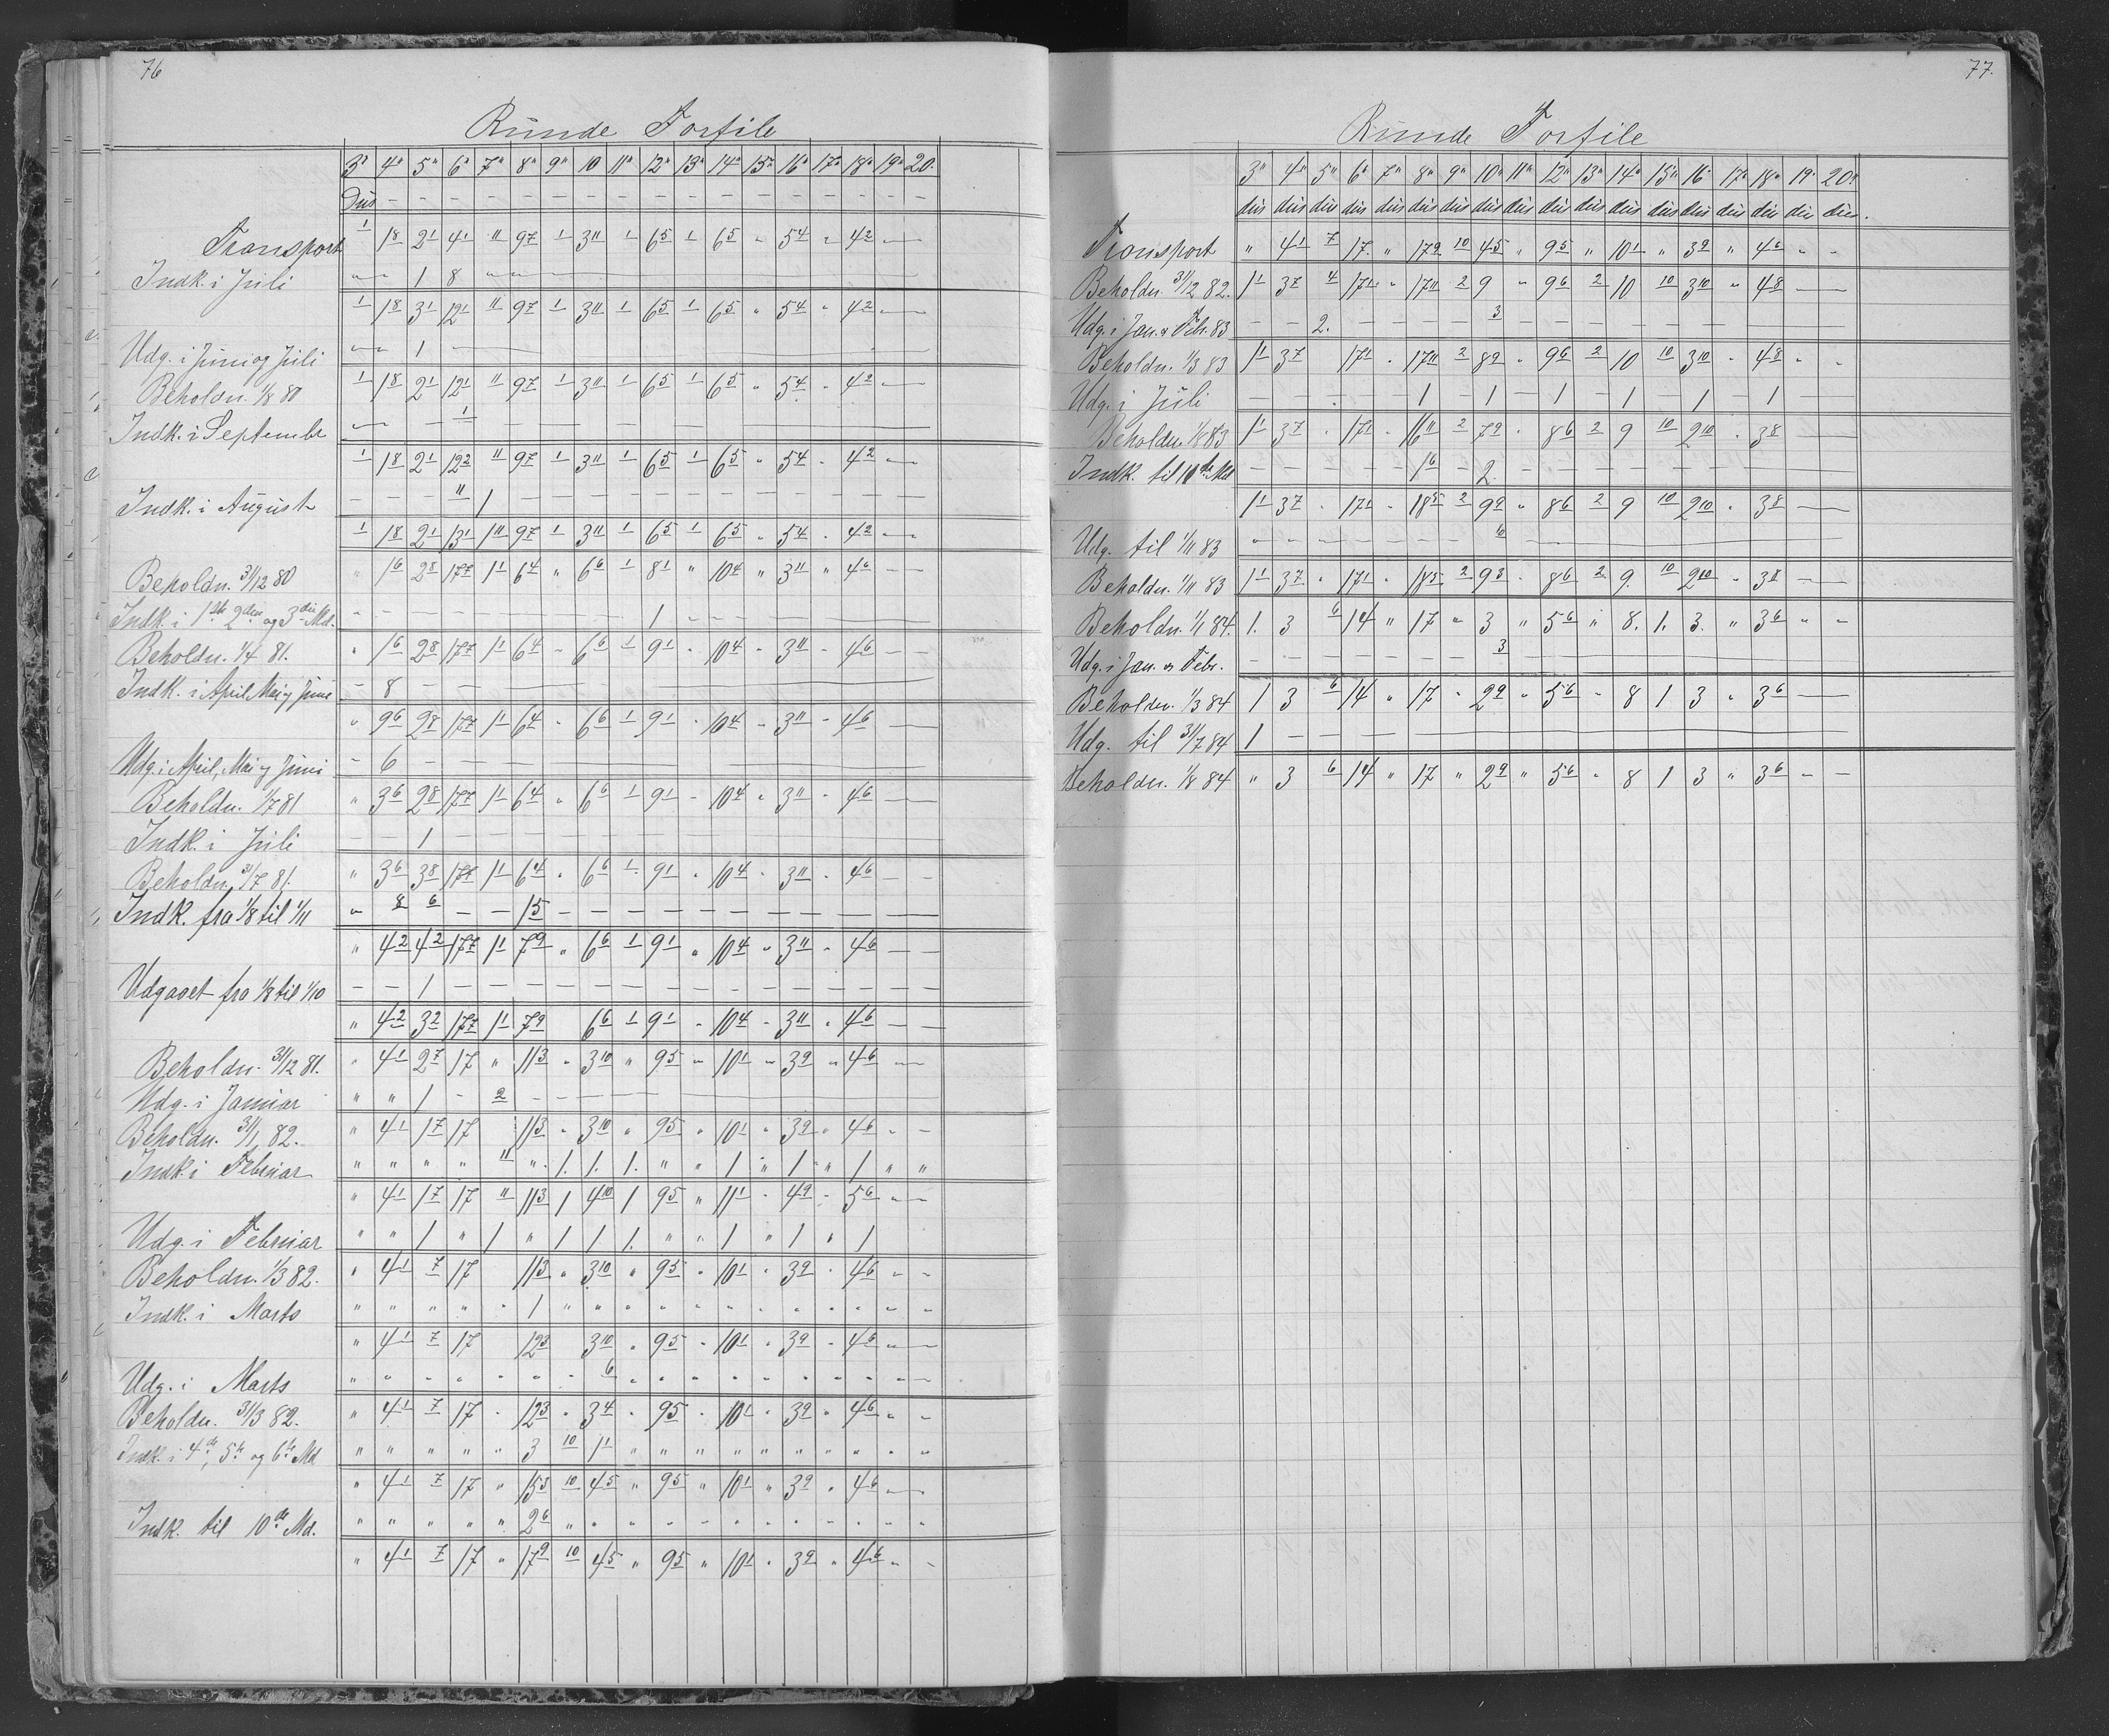 76
Runde Forfile
3" 4" 5" 6" 7" 8" 9" 10 11" 12" 13" 14" 15" 16" 17" 18" 19" 20.
Dus – – – – – – – – – – – – – – – – –
Transport 1 1 8 2 1 4 1 11 9 7 1 3 11 1 6 5 1 6 5 " 5 4 " 4 2 —
Indk. i Juli " " 1 8 " " "
1 1 8 3 1 12 1 11 9 7 1 3 11 1 6 5 1 6 5 " 5 4 " 4 2 —
Udg. i Juni og Juli " " 1 —
Beholdn. 1/8 80 1 1 8 2 1 12 1 11 9 7 1 3 11 1 6 5 1 6 5 " 5 4 " 4 2 —
Indk. i Septembr — – 1 – – –
1 1 8 2 1 12 2 11 9 7 1 3 11 1 6 5 1 6 5 " 5 4 " 4 2 —
Indk. i August – – – 11 1 – – – – – – – – – – – – –
1 1 8 2 1 13 1 1 11 9 7 1 3 11 1 6 5 1 6 5 " 5 4 " 4 2 —
Beholdn. 31/12 80 " 1 6 2 8 17 7 1 1 6 4 " 6 6 1 8 1 " 10 4 " 3 11 " 4 6 – –
Indk. i 1ste 2den og 3die Md. – – – – – – – – – 1 – – – –
Beholdn. 1/4 81. " 1 6 2 8 17 7 1 1 6 4 – 6 6 1 9 1 " 10 4 " 3 11 " 4 6 – –
Indk. i April, Mai og Juni – 8 – – —
" 9 6 2 8 17 7 1 1 6 4 " 6 6 1 9 1 " 10 4 " 3 11 " 4 6 —
Udg. i April, Mai og Juni – 6 – – – –
Beholdn. 1/7 81 " 3 6 2 8 17 7 1 1 6 4 " 6 6 1 9 1 " 10 4 " 3 11 " 4 6 — —
Indk. i Juli – – 1 – – – – – – – – – –
Beholdn. 31/7 81. " 3 6 3 8 17 7 1 1 6 4 " 6 6 1 9 1 " 10 4 " 3 11 " 4 6 – –
Indk. fra 1/8 til 1/11 " 8 6 – – 1 5 – – – – – – – – – – – –
" 4 2 4 2 17 7 1 1 7 9 " 6 6 1 9 1 " 10 4 " 3 11 " 4 6 – –
Udgaaet fra 1/8 til 1/10 – – 1 – – – – – – – – – – – – – – –
" 4 2 3 2 17 7 1 1 7 9 6 6 1 9 1 " 10 4 " 3 11 " 4 6 – –
Beholdn. 31/12 81. " 4 1 2 7 17 " 11 3 " 3 10 " 9 5 " 10 1 " 3 9 " 4 6 – –
Udg. i Januar " " 1 – 2 – – –
Beholdn. 31/1 82. " 4 1 1 7 17 11 3 " 3 10 " 9 5 " 10 1 " 3 9 " 4 6 " –
Indk. i Februar " " " " 11 " 1. 1. 1. " " 1 " 1 " 1 " "
" 4 1 1 7 17 11 11 3 1 4 10 1 9 5 " 11 1 " 4 9 " 5 6 " –
Udg. i Februar " " 1 " 1 " 1 1 1. " " 1 " 1 " 1
Beholdn. 1/3 82. " 4 1 7 17 11 3 " 3 10 " 9 5 " 10 1 " 3 9 " 4 6 " –
Indk. i Marts " " " " " 1 " " " " " " " " " " " "
" 4 1 7 17 12 3 3 10 " 9 5 " 10 1 " 3 9 " 4 6 " –
Udg. i Marts " " " " " " " 6 " " " " " " " " " –
Beholdn. 31/3 82. " 4 1 7 17 " 12 3 " 3 4 " 9 5 " 10 1 " 3 9 " 4 6 " –
Indk. i 4de, 5te og 6te Md " " " " " 3 10 1 1 " " " " " " " " " "
" 4 1 7 17 " 15 3 10 4 5 " 9 5 " 10 1 " 3 9 " 4 6 " –
Indk. til 10de Md. " " " " " 2 6 " " " " " " " " " " "
" 4 1 7 17 " 17 9 10 4 5 " 9 5 " 10 1 " 3 9 " 4 6 " –
77.
Runde Forfile
3" 4" 5" 6" 7" 8" 9" 10" 11" 12" 13" 14" 15" 16" 17" 18" 19" 20"
dus dus dus dus dus dus dus dus dus dus dus dus dus dus dus dus dus dus.
Transport " 4 1 7 17. " 17 9 10 4 5 " 9 5 " 10 1 " 3 9 " 4 6 " –
Beholdn. 31/12 82. 1 1 3 7 4 17 1 " 17 11 2 9 " 9 6 2 10 10 3 10 " 4 8 – –
Udg. i Jan. & Febr. 83 – – 2. – – – – 3 – – – – – – –
Beholdn. 1/3 83 1 1 3 7 17 1 " 17 11 2 8 9 " 9 6 2 10 10 3 10 " 4 8 " "
Udg. i Juli – – . – – 1 – 1 – 1 – 1 – 1 – 1 – –
Beholdn. 1/8 83 1 1 3 7 " 17 1 " 16 11 2 7 9 " 8 6 2 9 10 2 10 " 3 8 —
Indk. til 10de Md – – – – – 1 6 – 2. – – – – – – –
1 1 3 7 " 17 1 " 18 5 2 9 9 " 8 6 2 9 10 2 10 " 3 8 —
Udg. til 1/11 83 " – – – – – – 6 —
Beholdn. 1/11 83 1 1 3 7 " 17 1 " 18 5 2 9 3 " 8 6 2 9. 10 2 10 " 3 8 – –
Beholdn. 1/1 84. 1. 3 6 14 " 17 " 3 " 5 6 " 8. 1. 3. " 3 6 " –
Udg. i Jan. og Febr. – – – – – – – 3 —
Beholdn. 1/3 84 1 3 6 14 " 17 " 2 9 " 5 6 " 8 1 3 " 3 6 —
Udg. til 31/7 84 1 – – – —
Beholdn. 1/8 84 " 3 6 14 " 17 " 2 9 " 5 6 " 8 1 3 " 3 6 – –